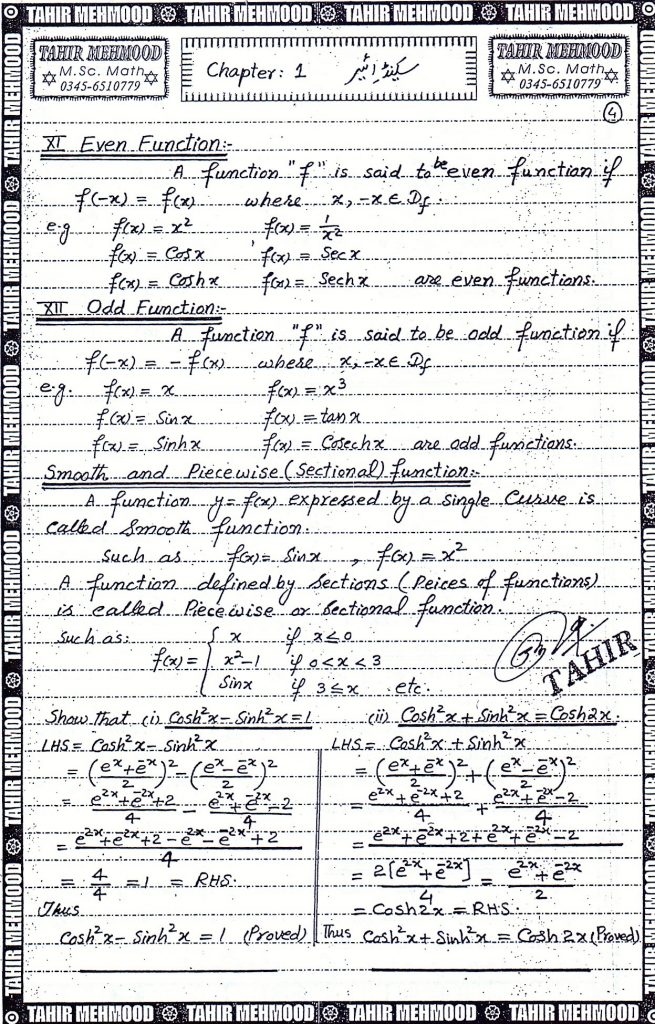 TAHIR MEHMOOD TAHIR MEHMOOD TAHIR MEHMOOD TAHIR MEHMOOD
TAHIR MEHMOOD
M.Sc. Math
0345-6510779
Chapter: 1 سیکنڈ ائیر
TAHIR MEHMOOD
M.Sc. Math
0345-6510779
4
XI Even Function:-
A function "f" is said to be even function if
f(-x) = f(x) where x, -x ∈ Df.
e.g f(x) = x² f(x) = 1/x²
f(x) = Cosx , f(x) = Secx
f(x) = Coshx f(x) = Sechx are even functions.
XII Odd Function:-
A function "f" is said to be odd function if
f(-x) = - f(x) where x, -x ∈ Df
e.g. f(x) = x f(x) = x³
f(x) = Sinx f(x) = tanx
f(x) = Sinhx f(x) = Cosechx are odd functions.
Smooth and Piecewise (Sectional) function:-
A function y = f(x) expressed by a single Curve is
called Smooth function.
such as f(x) = Sinx , f(x) = x²
A function defined by Sections (Peices of functions)
is called Piecewise or Sectional function.
Such as: f(x) = { x if x ≤ 0
x²-1 if 0 < x < 3
Sinx if 3 ≤ x . etc.
TAHIR
Show that (i) Cosh²x - Sinh²x = 1 (ii) Cosh²x + Sinh²x = Cosh2x.
LHS = Cosh²x - Sinh²x
= ((eˣ+e⁻ˣ)/2)² - ((eˣ-e⁻ˣ)/2)²
= (e²ˣ+e⁻²ˣ+2)/4 - (e²ˣ+e⁻²ˣ-2)/4
= (e²ˣ+e⁻²ˣ+2-e²ˣ-e⁻²ˣ+2)/4
= 4/4 = 1 = RHS.
Thus
Cosh²x - Sinh²x = 1 (Proved)
LHS = Cosh²x + Sinh²x
= ((eˣ+e⁻ˣ)/2)² + ((eˣ-e⁻ˣ)/2)²
= (e²ˣ+e⁻²ˣ+2)/4 + (e²ˣ+e⁻²ˣ-2)/4
= (e²ˣ+e⁻²ˣ+2+e²ˣ+e⁻²ˣ-2)/4
= 2[e²ˣ+e⁻²ˣ]/4 = (e²ˣ+e⁻²ˣ)/2
= Cosh2x = RHS.
Thus Cosh²x + Sinh²x = Cosh2x (Proved)
TAHIR MEHMOOD TAHIR MEHMOOD TAHIR MEHMOOD TAHIR MEHMOOD